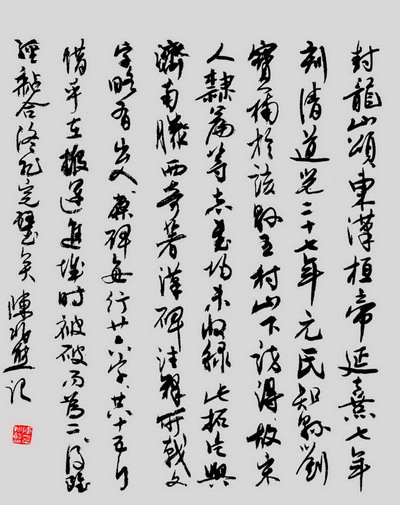 封龍山頌東漢桓帝延熹七年
刻清道光二十七年元氏知縣劉
寶楠於該縣王村山下訪得故宋
人隸篇等志書均未收錄此拓片與
濟南滕西奇著漢碑注釋所載文
字略有出入碑每行廿六字共十五行
惜乎在搬運進城時被破而為二後雖
經黏合終非完璧矣 陳记